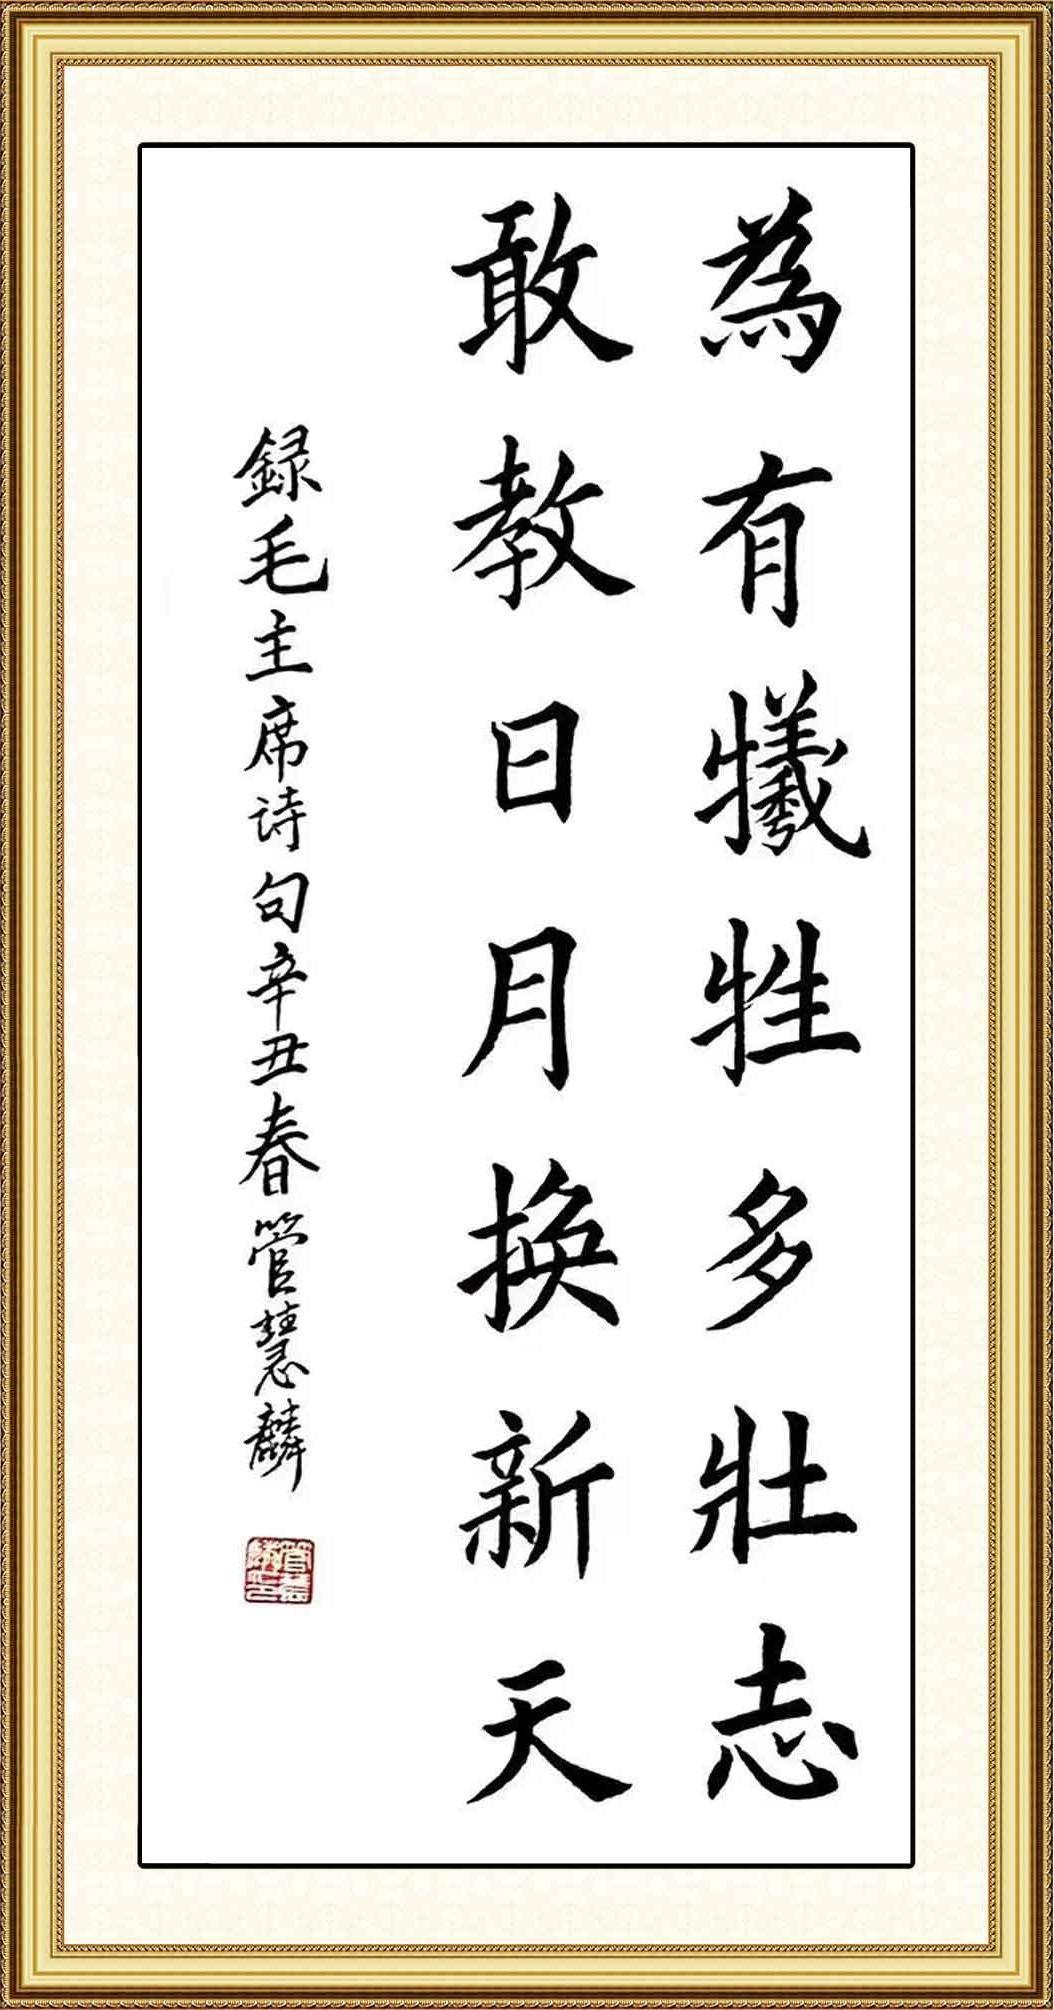 為有犧牲多壯志
敢教日月換新天
録毛主席诗句辛丑春管慧麟